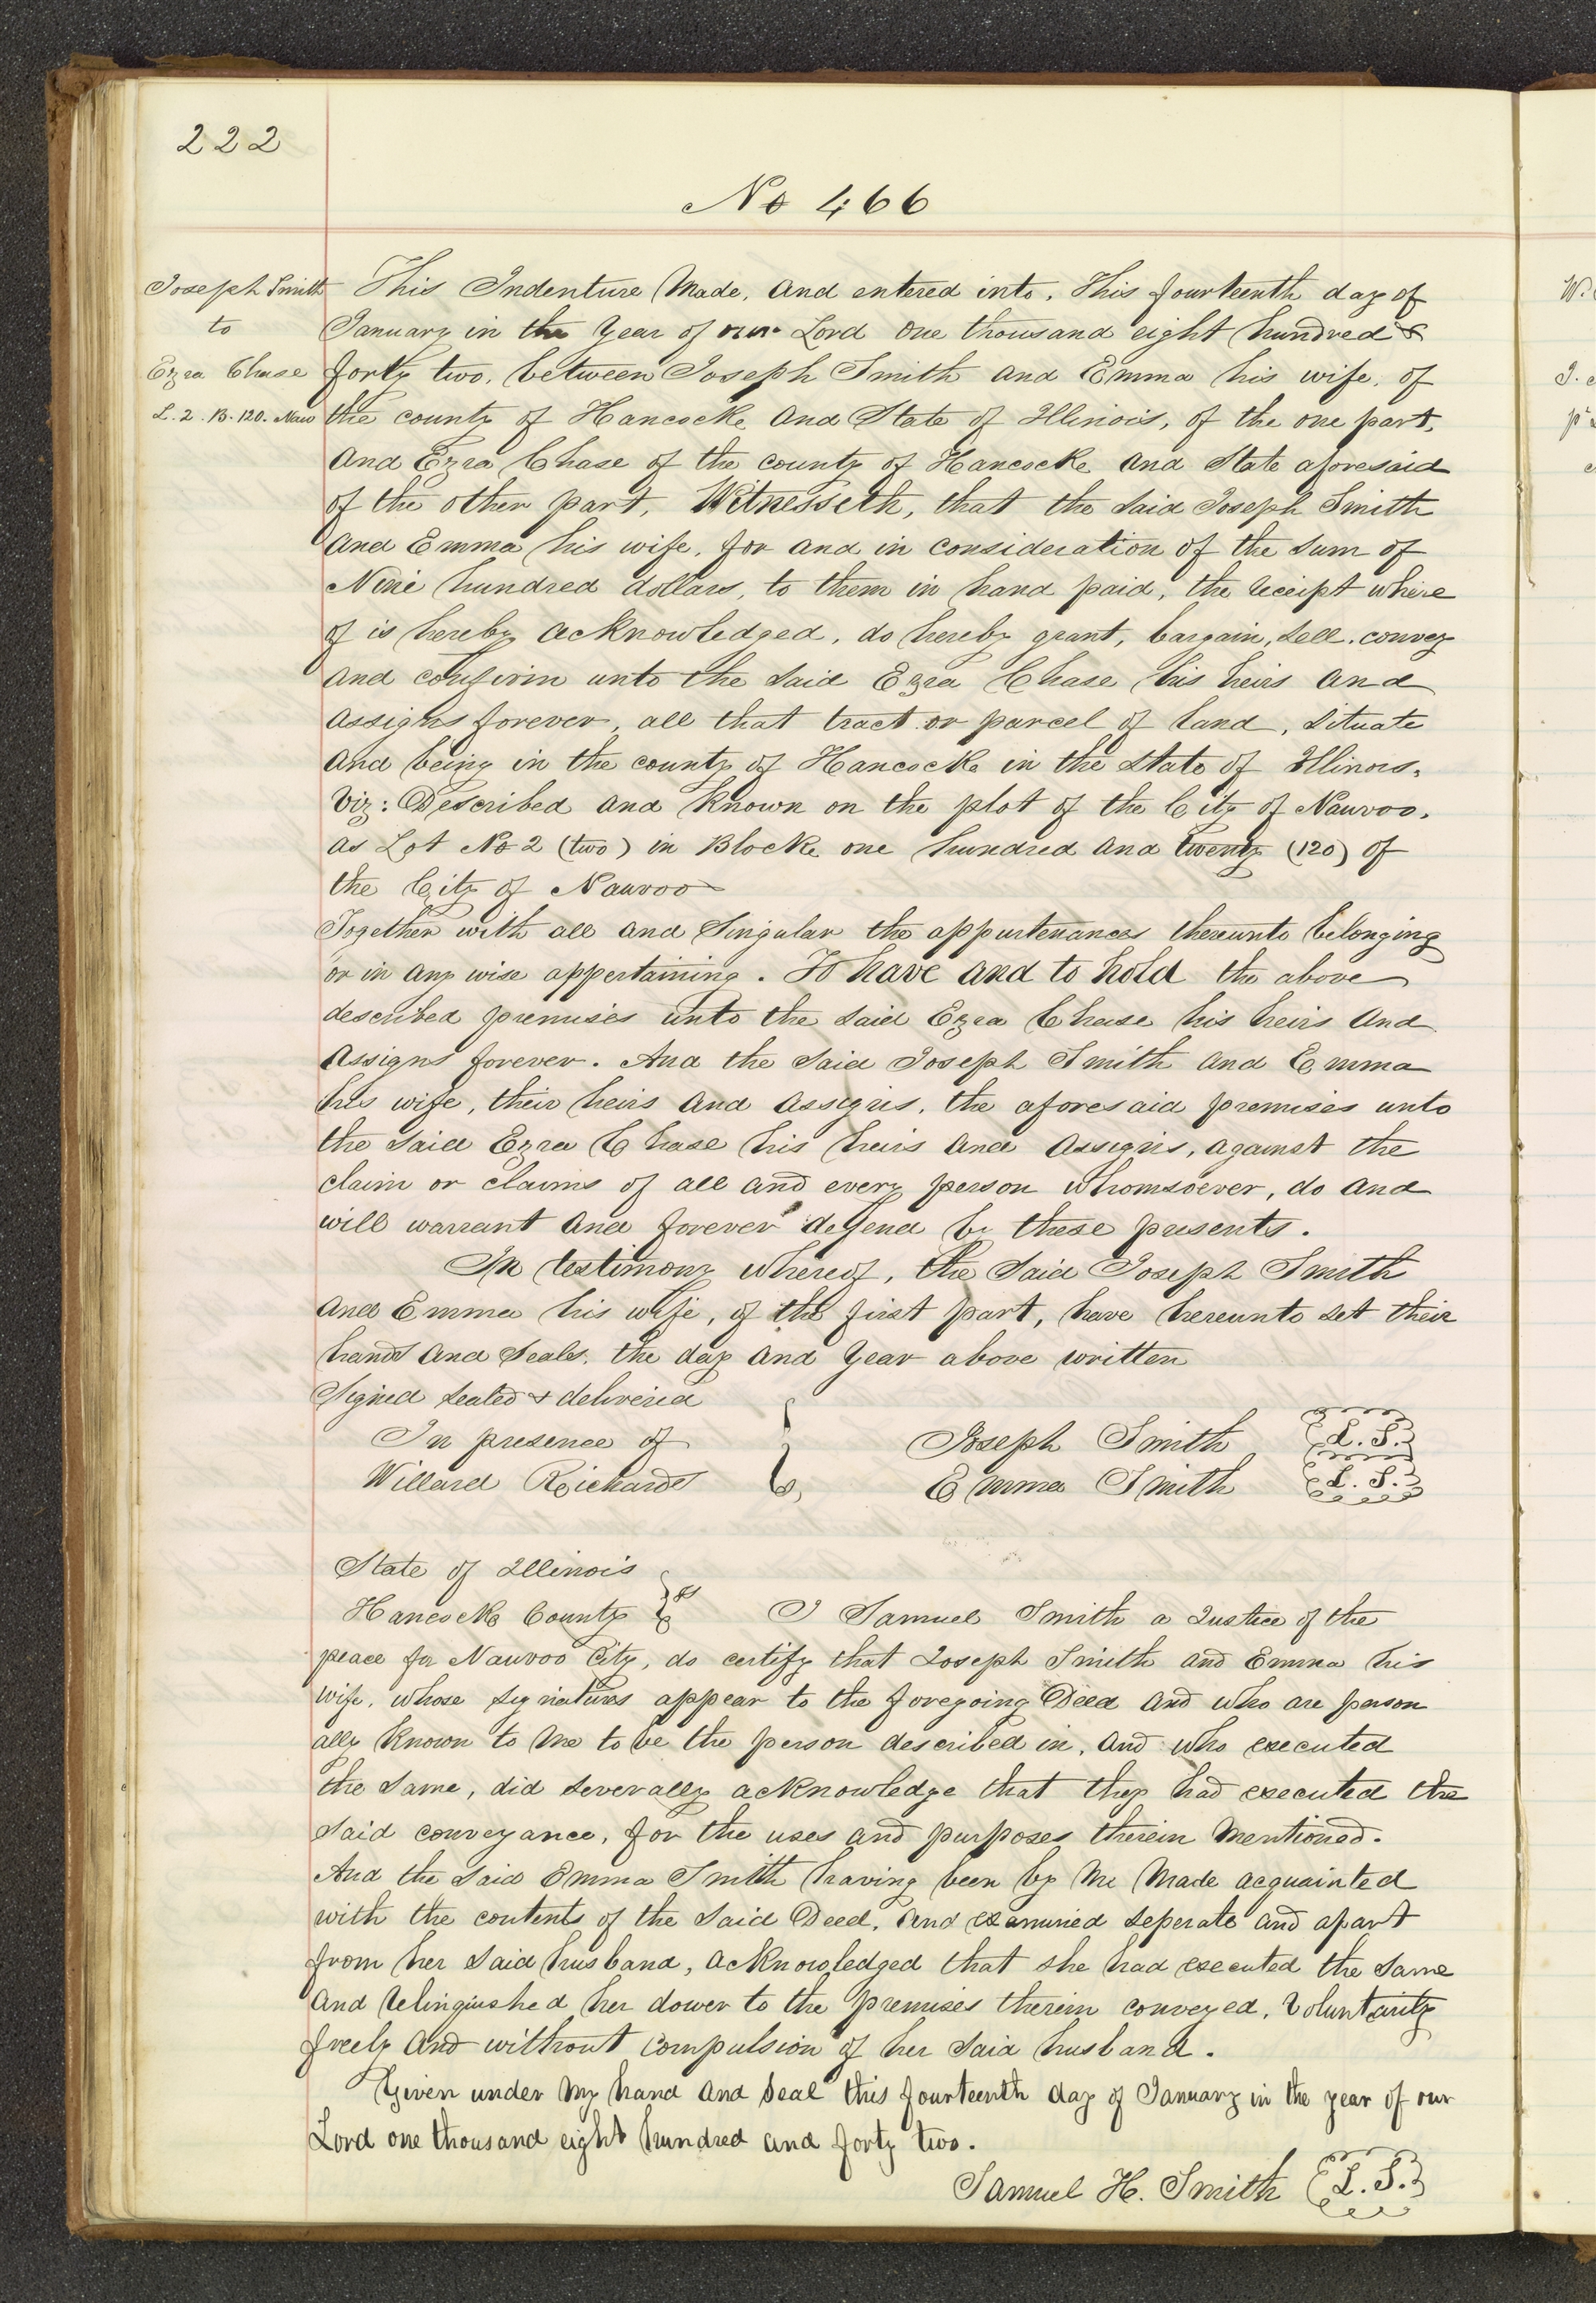 222
No 466
Joseph Smith
to
Ezra Chase
L. 2. B. 120. Nauv
This Indenture Made, and entered into, This fourteenth day of
January in the Year of our Lord One thousand eight hundred &
forty two, between Joseph Smith and Emma his wife, of
the county of Hancocke and State of Illinois, of the one part,
And Ezra Chase of the county of Hancocke and State aforesaid
of the other part, Witnesseth, that the Said Joseph Smith
and Emma his wife, for and in consideration of the Sum of
Nine hundred dollars, to them in hand paid, the receipt where
of is hereby acknowledged, do hereby grant, bargain, Sell, convey
and confirm unto the Said Ezra Chase his heirs and
assigns forever, all that tract or parcel of land, Situate
and being in the county of Hancocke in the State of Illinois,
Viz: Described and Known on the plot of the City of Nauvoo,
as Lot No 2 (two) in Blocke one hundred and twenty (120) of
the City of Nauvoo
Together with all and Singular the appurtenances thereunto belonging
or in any wise appertaining. To have and to hold the above
described premises unto the Said Ezra Chase his heirs and
assigns forever. And the Said Joseph Smith and Emma
his wife, their heirs and assigns, the aforesaid premises unto
the Said Ezra Chase his heirs and assigns, against the
claim or claims of all and every person whomsoever, do and
will warrant and forever defend by these presents.
In testimony whereof, the Said Joseph Smith
and Emma his wife, of the first part, have hereunto set their
hands and Seals, the day and Year above written
Signed Sealed & delivered
In presence of
Willard Richards
Joseph Smith L. S.
Emma Smith L. S.
State of Illinois
Hancocke County } ss I Samuel Smith a Justice of the
peace for Nauvoo City, do certify that Joseph Smith and Emma his
wife, whose Signatures appear to the foregoing Deed and who are person
ally Known to me to be the person described in, and who executed
the Same, did Severally acknowledge that they had executed the
Said conveyance, for the uses and purposes therein Mentioned.
And the Said Emma Smith having been by Me Made acquainted
with the contents of the Said Deed, and examined Seperate and apart
from her Said husband, acknowledged that she had executed the Same
And relinquished her dower to the premises therein conveyed, Voluntarily
freely and without compulsion of her Said husband.
Given under my hand and Seal this fourteenth day of January in the year of our
Lord one thousand eight hundred and forty two.
Samuel H. Smith L. S.